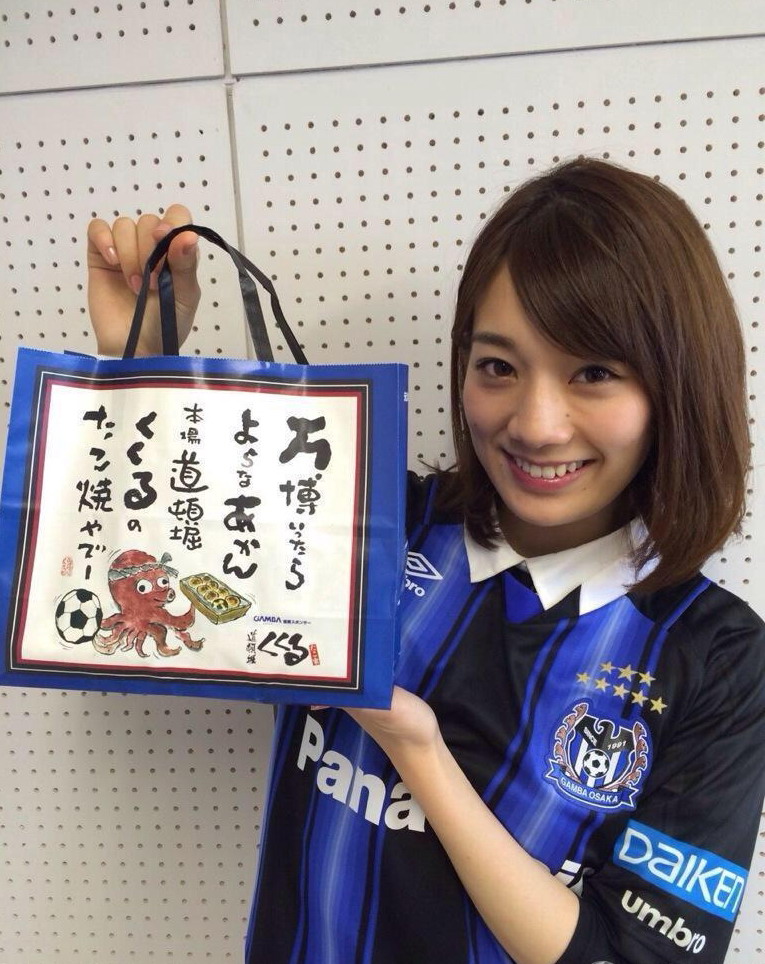 万博いったら
よらなあかん
本場道頓堀
くくるの
たこ焼やでー
GAMBA
道頓堀
くくる
umbro
Pana
SINCE 1991
GAMBA OSAKA
DAIKEN
umbro